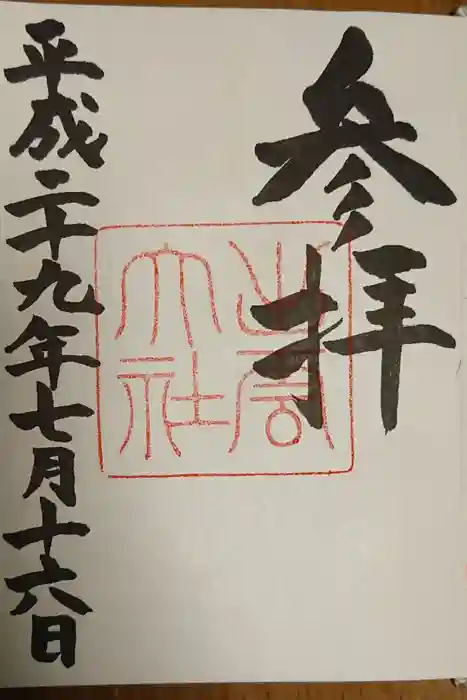 参拝
出雲大社
平成二十九年七月十六日